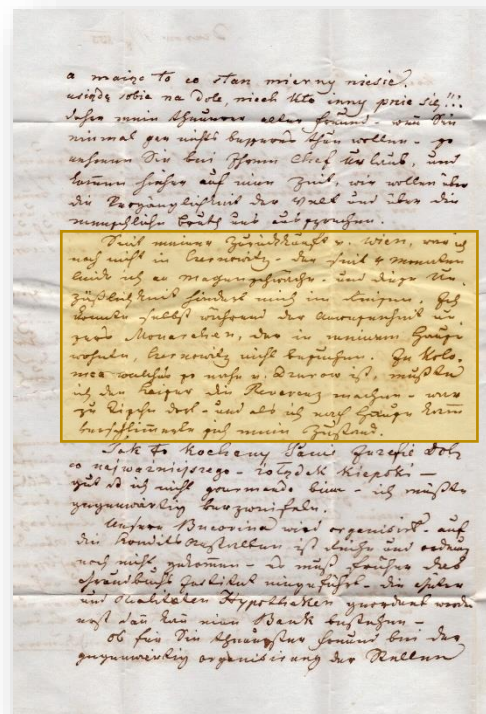 a mając to co stan mierny niesie.
usiędę sobie na dole, niech kto inny pnie się!!!
daher mein theurer alter Freund - wen Sie
einmal gar nichts besseres thun wollen - so
nehmen Sie bei Ihrem Chef Urlaub, und
kommen hieher auf eine Zeit, wir wollen über
die Vergänglichkeit der Welt und über die
menschliche uns aussprechen.
Seit meiner Zurückkunft v. Wien, war ich
noch nicht in Czernowitz - den seit 4 Monaten
leide ich an Magenschwäche - und diese Un-
päßlichkeit hindert mich im Reisen, Ich
konnte selbst während der Anwesenheit un-
seres Monarchen, der in meinem Hause
wohnte, Czernowitz nicht besuchen. Zu Kolo-
mea welches so nahe v. ist, mußte
ich dem Kaiser die Reverenz machen - war
zu Tische dort - und als ich nach Hause kam
verschlimmerte sich mein Zustand.
Tak to Kochany Panie Józefie Dob.
co najważniejszego - żołądek kiepski -
gut daß ich nicht gourmand bin - ich müßte
gegenwärtig verzweifeln.
Unsere Bucovina wird organisirt - auf
die Kredits Anstalten ist Reihe und Ordnung
noch nicht gekommen - Es muß früher das
Grundbuchs Institut eingeführt - die Güter
und Realitäten Hypotheken geordnet werden
erst dan kan eine Bank bestehen -
Ob für Sie theuerster Freund bei der
gegenwärtig organisirung der Stellen